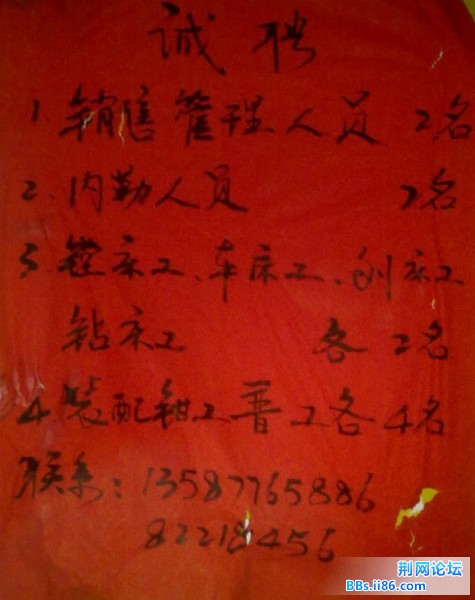 诚聘
1. 销售管理人员 2名
2. 内勤人员 2名
3. 镗床工、车床工、刨床工
钻床工 各2名
4. 装配钳工普工各4名
联系：13587765886
82218456
荆网论坛
BBs.ii86.com